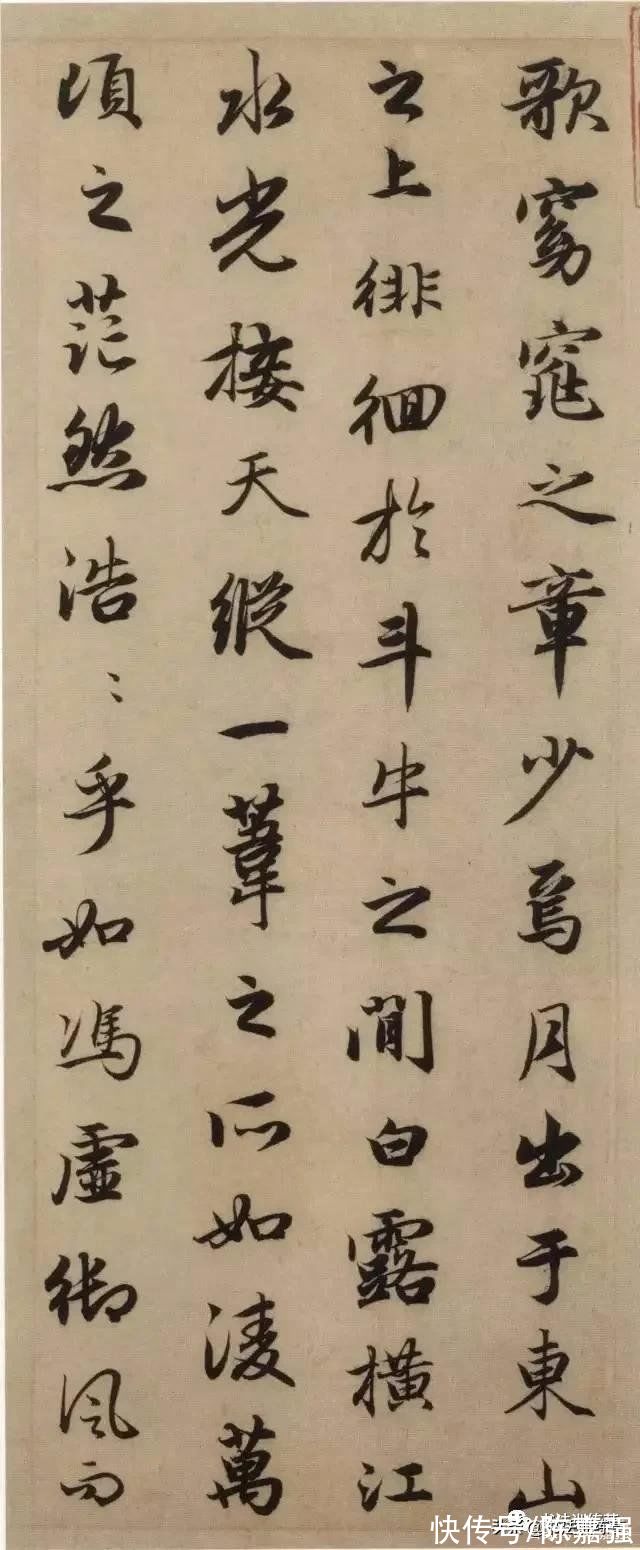 歌窈窕之章少焉月出于東山
之上徘徊於斗牛之間白露橫江
水光接天縱一葦之所如凌萬
頃之茫然浩〻乎如馮虛御風而
快传号/陈嘉强